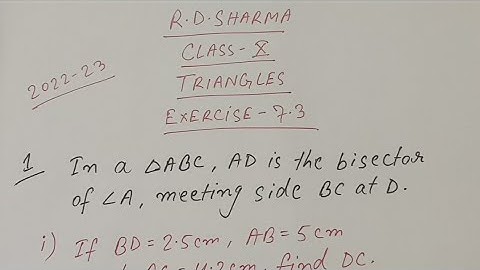 R.D.SHARMA
CLASS-X
2022-23
TRIANGLES
EXERCISE-7.3
1 In a △ABC, AD is the bisector
of ∠A, meeting side BC at D.
i) If BD = 2.5cm, AB = 5cm
AC = 4.2cm, find DC.